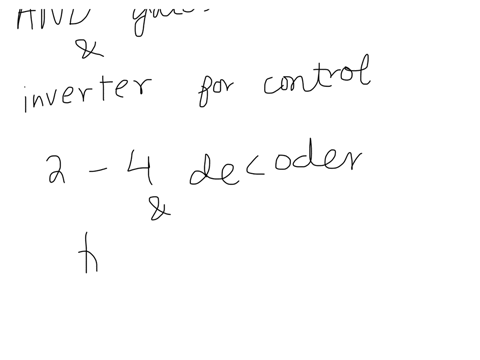 AND
&
inverter for control
2 - 4 decoder
&